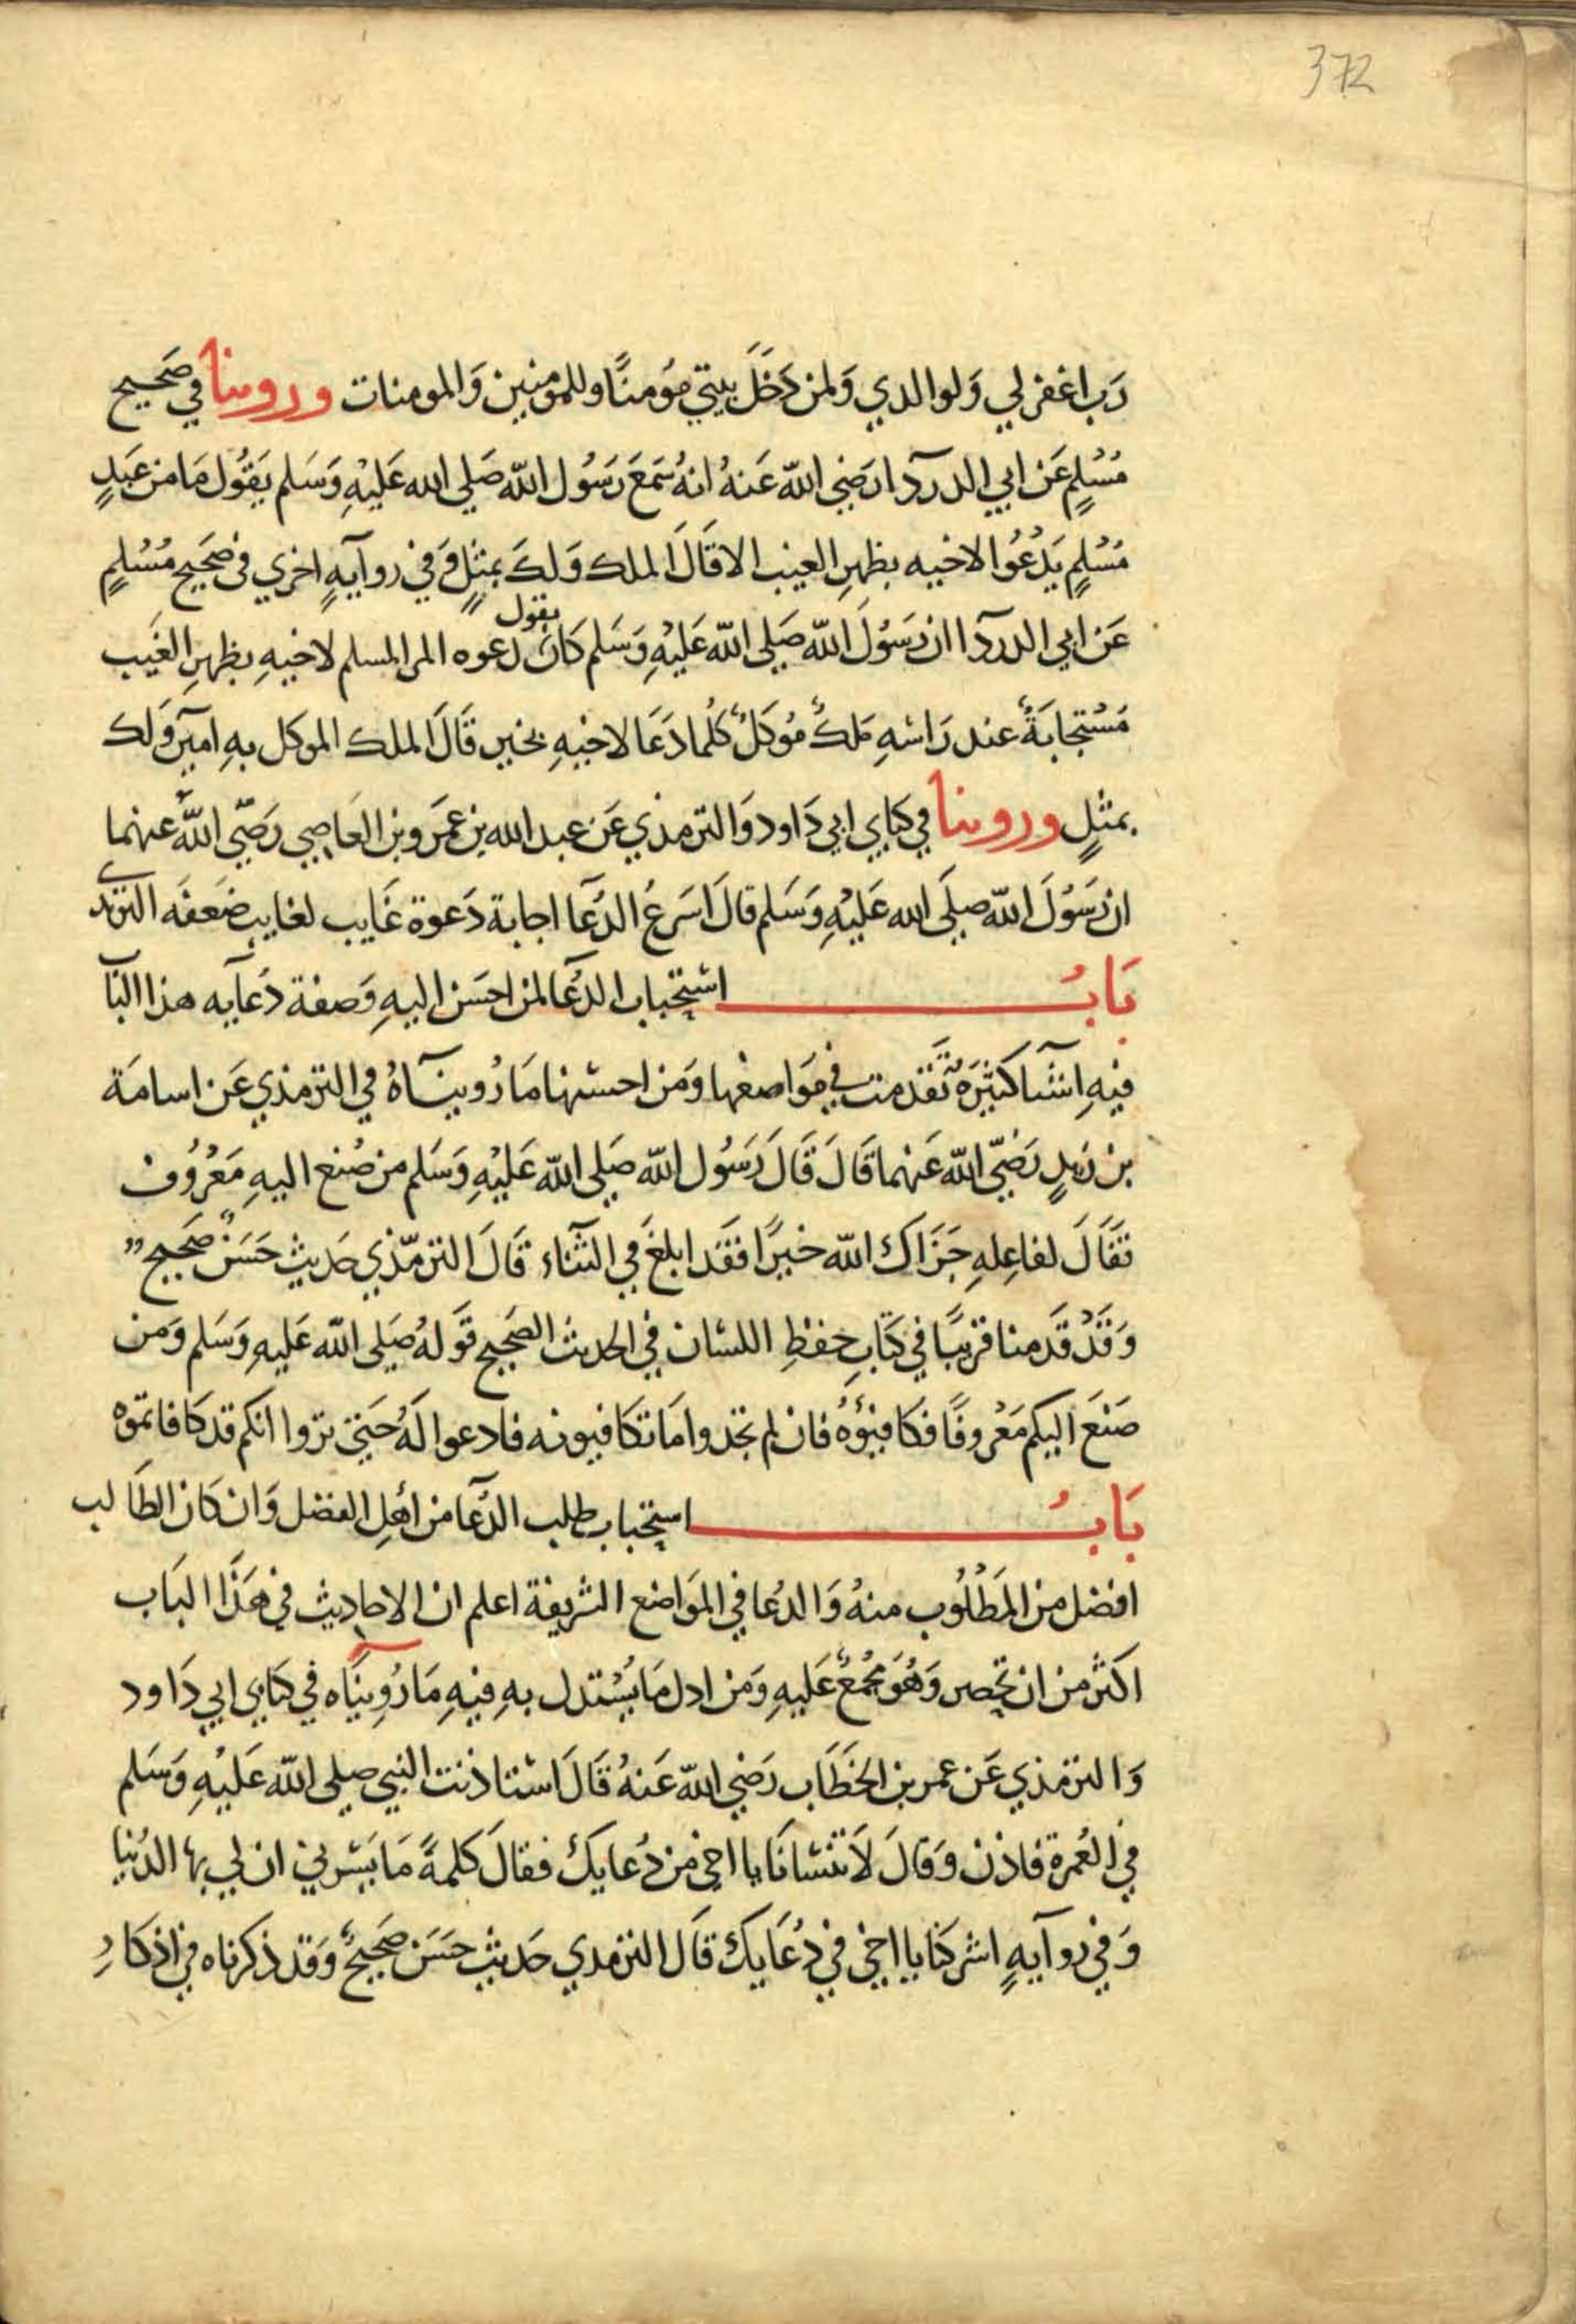 372
رَب اغفر لي وَلوالدي وَلمن دَخَلَ بيتي مؤمنًا وللمؤمنين وَالمومنات وروينا في صَحيح
مُسْلِمٍ عَن ابي الدردآ ا رَضي الله عَنهُ انهُ سَمعَ رَسُول الله صَلي الله عَليْهِ وَسَلم يَقُول مَا من عَبدٍ
مُسْلِمٍ يَدْعُوا لاخيه بظهرِ الغيب الا قَالَ الملك وَلكَ بمثلٍ وَفي روآيهٍ اخري في صَحَيح مُسْلِمٍ
عَن ابي الدردآ ا ان رَسُولَ الله صَلي الله عَليْهِ وَسَلم كَانَ يقول دعوه المرا المسلم لاخيهِ بظهرِ الغَيب
مُسْتجابَةٌ عند رَاسْهِ مَلكٌ مُوكَلٌ كُلما دَعَا لاخيهِ بخير قَالَ الملك الموكل بهِ امين وَلك
بمثلٍ وروينا في كتابي ابي دَاود وَالترمذي عَن عبد الله بن عَمَرو بن العَاصي رَضّي اللهُ عنهما
ان رَسُولَ الله صلَي الله عَليْهِ وَسَلم قالَ اسَرعُ الدُعَآ اجابة دَعوة غَايب لغايب ضَعفَه الترمذي
بَابُ استحباب الدُعَآ لمن احسَن اليهِ وَصفة دَعآيه هذا البَا
فيهِ اشيآ كثيرَهُ تَقَدمت في مَواضعها وَمَن احسْنها مَا رُوينَآهُ في الترمذي عَن اسامَة
بن زيدٍ رَضّي الله عَنهما قَالَ قَالَ رَسُول الله صَلي الله عَليْهِ وَسَلم من صُنع اليهِ مَعْرُوف
فقَالَ لفاعِلهِ جَزَاك الله خيرًا فقَد ابلغَ في الثنآء قَالَ الترمّذي حَديث حَسَنٌ صَحَيح
وَقَدْ قَدمنا قريبًا في كتَابِ حِفظِ اللسْان في الحديث الصَحَيح قَولهُ صَلي الله عَليهِ وَسَلم وَمن
صَنعَ اليكم مَعْروفًا فكَافيؤهُ فان لم تجدوا مَا تكَافيونه فادعوا لَهُ حَتي تروا انكم قد كَافاتموه
بَابُ استحباب طلب الدُعآ من أهل الفضل وَان كَان الطَالب
افضل من المَطْلُوب منهُ وَالدُعا في المَوَاضع الشريفة اعلم ان الاحاديث في هَذَا البَاب
اكثر من ان تحصر وَهُوَ مجُمعٌ عَليهِ وَمَن ادل مَا يُسْتدل بهِ فيهِ مَا رُوِينَاه في كتابي ابي دَاود
وَالترمذي عَن عمر بن الخَطَاب رَضي الله عَنهُ قَالَ اسْتاذنت النبي صلي الله عَليْهِ وَسَلم
في العُمرة فاذن وَقالَ لاَ تنسْانَا يا اخي من دُعايك فقالَ كلمةً مَا يَسْرني ان لي بها الدُنيا
وَفي روآيهٍ اشركنا يا اخي في دُعَايك قَالَ الترمدي حَديث حسَن صَحَيحٌ وَقد ذكرناه في اذكَارِ